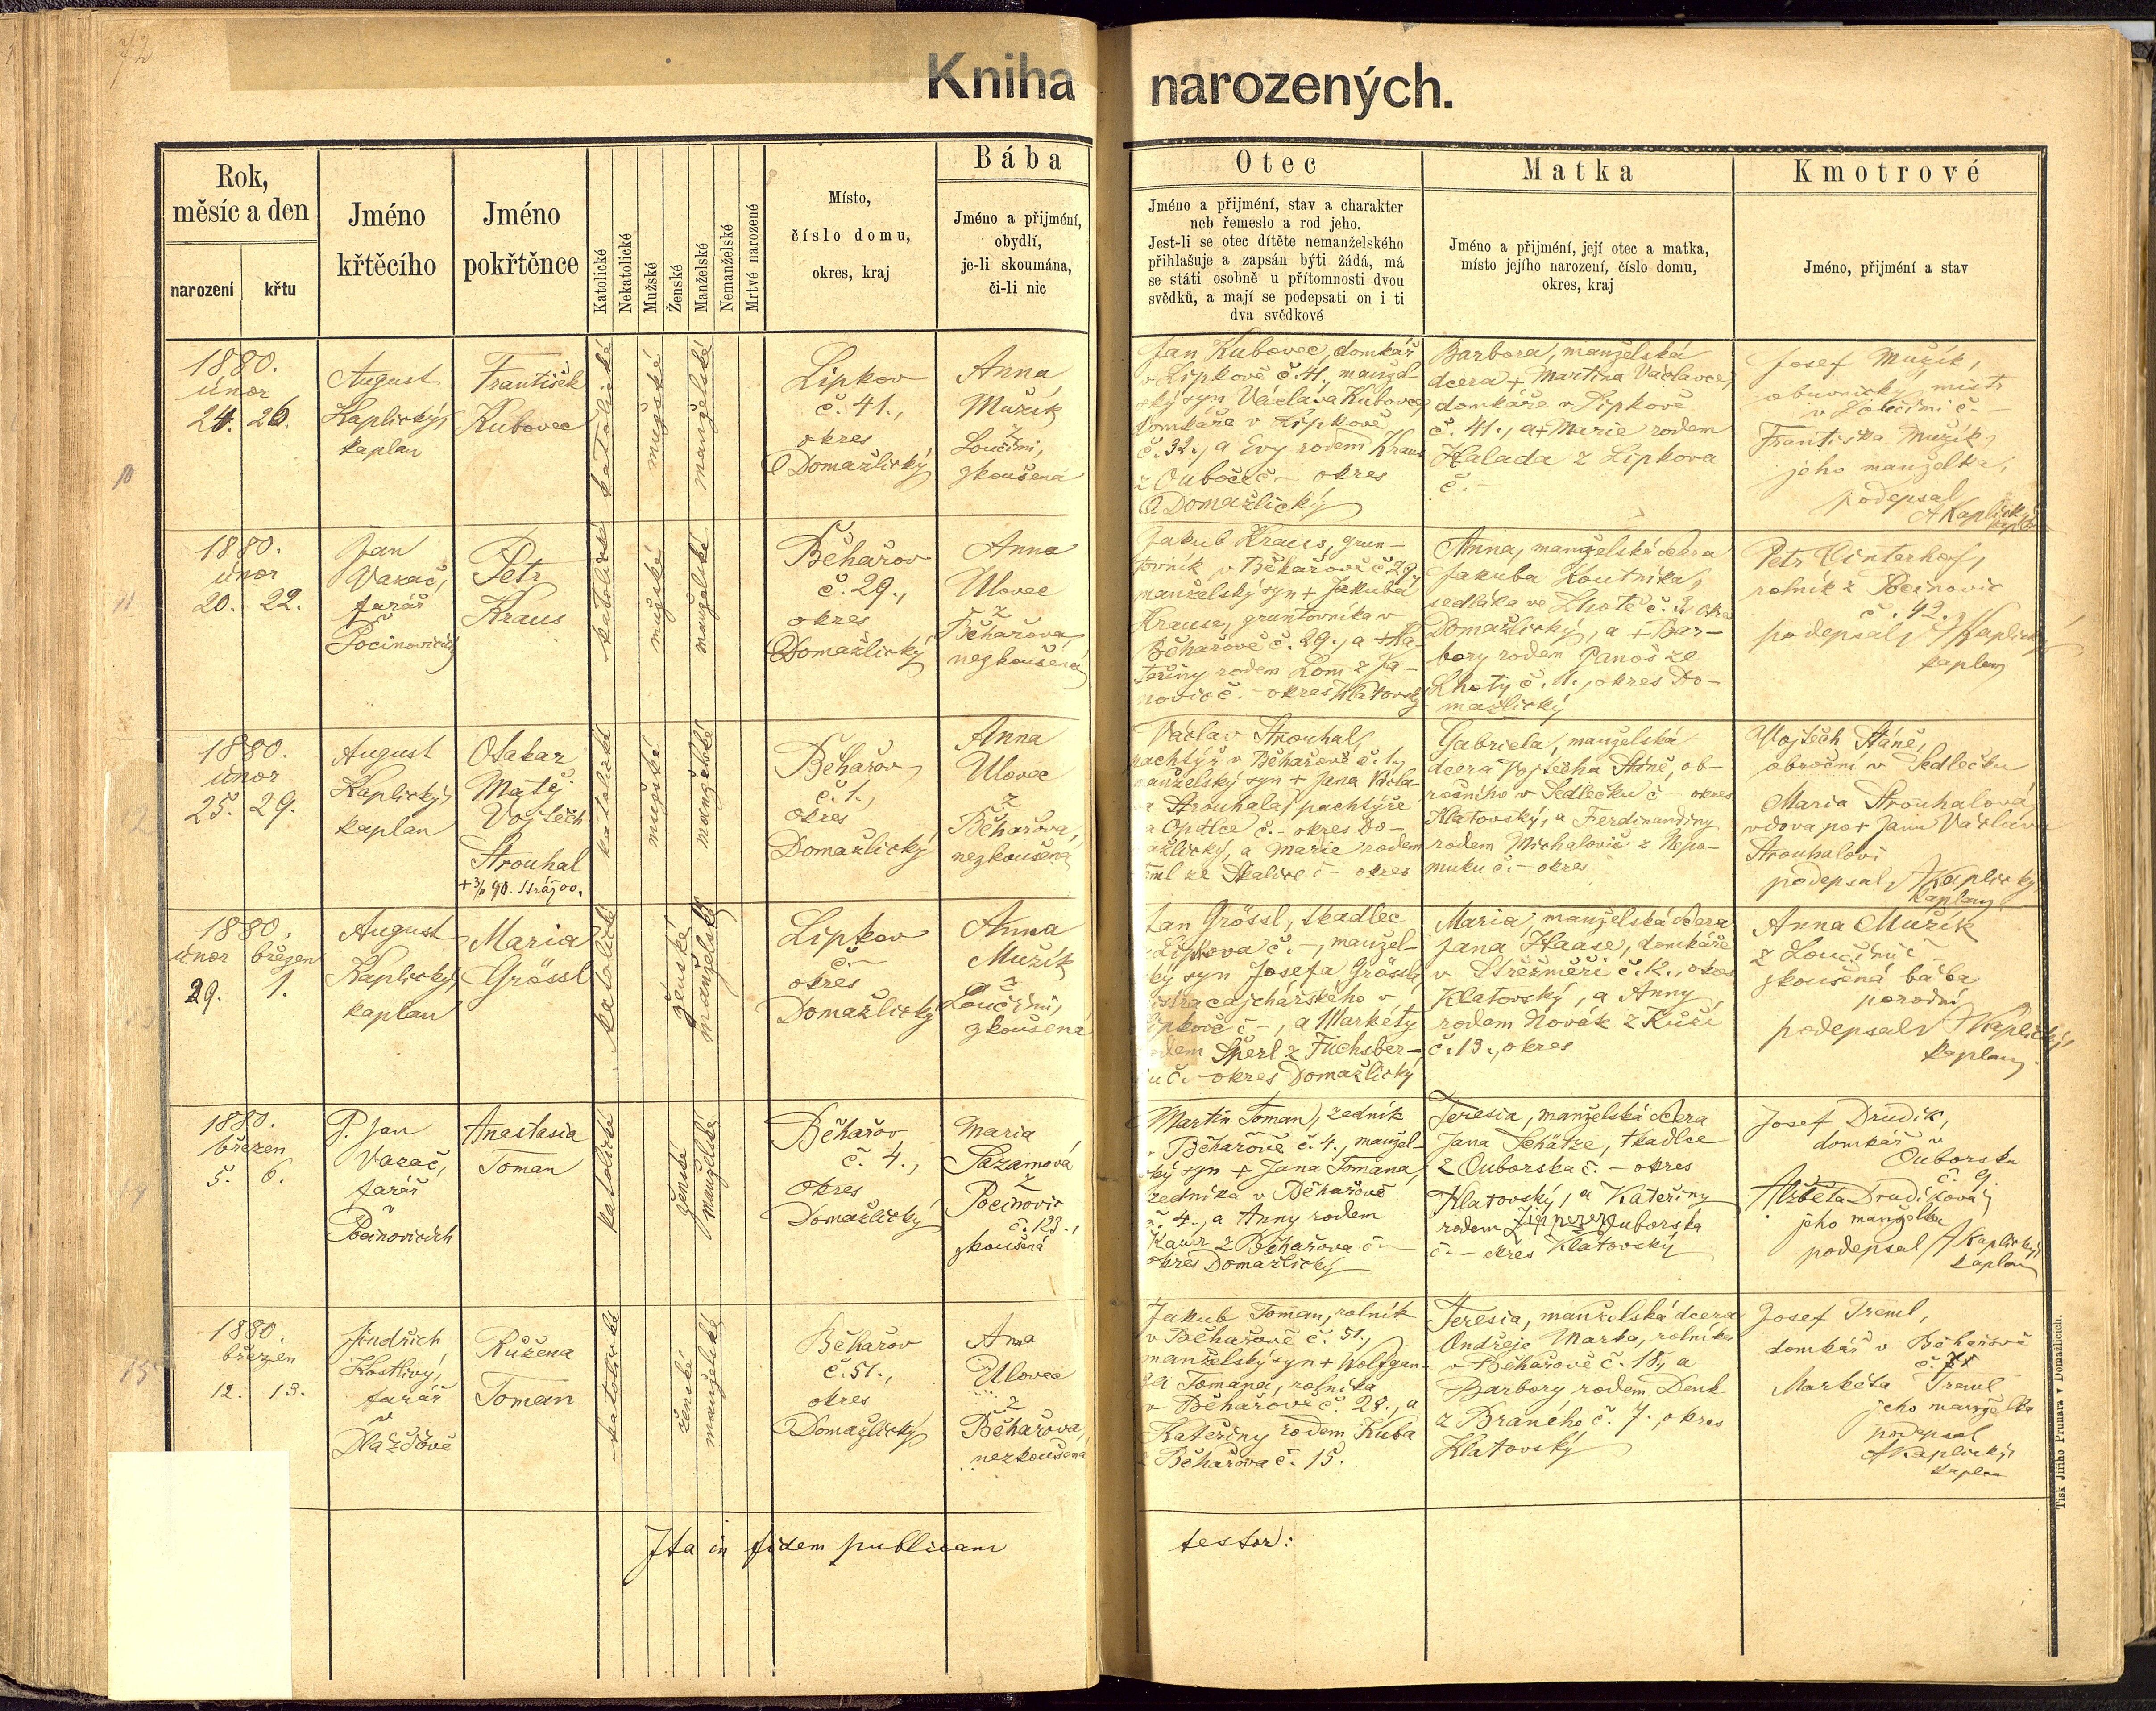 72
Kniha narozených.
Rok,
měsíc a den
narození
křtu
Jméno
křtěcího
Jméno
pokřtěnce
Katolické
Nekatolické
Mužské
Ženské
Manželské
Nemanželské
Mrtvé narozené
Místo,
číslo domu,
okres, kraj
Bába
Jméno a přijmení,
obydlí,
je-li skoumána,
či-li nic
Otec
Jméno a přijmení, stav a charakter
neb řemeslo a rod jeho.
Jest-li se otec dítěte nemanželského
přihlašuje a zapsán býti žádá, má
se státi osobně u přítomnosti dvou
svědků, a mají se podepsati on i ti
dva svědkové
Matka
Jméno a přijmení, její otec a matka,
místo jejího narození, číslo domu,
okres, kraj
Kmotrové
Jméno, přijmení a stav
10
1880.
únor
24. 26.
August
Kaplický,
kaplan
František
Kubovec
katolické
mužské
manželské
Lipkov
č. 41.,
okres
Domažlický
Anna
Mužík
z
Loučimi,
zkoušená
Jan Kubovec, domkář
v Lipkově č. 41., manžel-
ský syn Václava Kubovce,
domkáře v Lipkově
č. 32., a Evy rodem Kraus
z Ouboče č - okres
Domažlický
Barbora, manželská
dcera + Martina Václavce,
domkáře v Lipkově
č. 41., a + Marie rodem
Halada z Lipkova
č. -
Josef Mužík,
obuvnický mistr
v Loučimi č. -
Františka Mužík,
jeho manželka,
podepsal
A Kaplický
kaplan
11
1880.
únor
20. 22.
Jan
Vazač,
farář
v
Pocinovicích
Petr
Kraus
katolické
mužské
manželské
Běhařov
č. 29.,
okres
Domažlický
Anna
Ulovec
z
Běhařova,
nezkoušená
Jakub Kraus, grun-
tovník v Běhařově č 29.,
manželský syn + Jakuba
Krause, gruntovníka v
Běhařově č. 29., a + Ka-
teřiny rodem Lom z Ja-
novic č. - okres Klatovský
Anna, manželská dcera
Jakuba Koutníka,
sedláka ve Lhotě č. 2. okres
Domažlický, a + Bar-
bory rodem Panoš ze
Lhoty č. 11., okres Do-
mažlický
Petr Cinterhof,
rolník z Pocinovic
č. 42.
podepsal A Kaplický
kaplan
12
1880.
únor
25. 29.
August
Kaplický,
kaplan
Otakar
Matěj
Vojtěch
Strouhal
katolické
mužské
manželské
Běhařov
č. 1.,
okres
Domažlický
Anna
Ulovec
z
Běhařova,
nezkoušená
Václav Strouhal,
pachtýř v Běhařově č. 1.,
manželský syn + Jana
Strouhala, pachtýře
okres Do-
mažlický, a Marie rodem
ze Skalice č - okres
Gabriela, manželská
dcera Vojtěcha Stáně, ob-
ročního v Sedlečku č - okres
Klatovský, a Ferdinandiny
rodem Michalovič z Nepo-
muku č. - okres
Vojtěch Stáně,
obroční v Sedlečku
Maria Strouhalová
vdova po + Janu Václavu
Strouhalovi
podepsal A Kaplický
kaplan
13
1880.
únor březen
29. 1.
August
Kaplický,
kaplan
Maria
Grössl
katolické
ženské
manželské
Lipkov
č. -
okres
Domažlický
Anna
Mužík
z
Loučimi,
zkoušená
Jan Grössl, tkadlec
z Lipkova č. -, manžel-
ský syn Josefa Grössla,
v
Lipkově č -, a Markéty
rodem Sperl z Fuchsber-
ku č. - okres Domažlický
Maria, manželská dcera
Jana Haase, domkáře
v Střežměři č. 12., okres
Klatovský, a Anny
rodem Novák z Kůží
č. 13., okres
Anna Mužík
z Loučimi č -
zkoušená bába
porodní
podepsal A Kaplický,
kaplan
14
1880.
březen
5. 6.
P. Jan
Vazač,
farář
v
Pocinovicích
Anastasia
Toman
katolické
ženské
manželské
Běhařov
č. 4.,
okres
Domažlický
Maria
Sazamová
z
Pocinovic
č. 123.,
zkoušená
Martin Toman, zedník
v Běhařově č. 4., manžel-
ský syn + Jana Tomana,
zedníka v Běhařově
č. 4., a Anny rodem
z Běhařova č -
okres Domažlický
Teresia, manželská dcera
Jana Schätze, tkadlce
z Ouborska č. - okres
Klatovský, a Kateřiny
rodem z Ouborska
č - okres Klatovský
Josef Drudík,
domkář v
Ouborsku
č. 9.
Alžběta Drudíková,
jeho manželka
podepsal A Kaplický,
kaplan
15
1880.
březen
12. 13.
Jindřich
Kostlivý,
farář
v
Dlažďově
Růžena
Toman
katolické
ženské
manželské
Běhařov
č. 51.,
okres
Domažlický
Anna
Ulovec
z
Běhařova,
nezkoušená
Jakub Toman, rolník
v Běhařově č. 51.,
manželský syn + Wolfgan-
ga Tomana, rolníka
v Běhařově č. 28., a
Kateřiny rodem Kuba
z Běhařova č. 15.
Teresia, manželská dcera
Ondřeje Marka, rolníka
v Běhařově č. 18., a
Barbory rodem Denk
z Braného č. 7., okres
Klatovský
Josef Treml,
domkář v Běhařově
Markéta Treml
jeho manželka
podepsal
A Kaplický,
kaplan
Ita in fidem publicam testor:
Tisk Jiřího Prunara v Domažlicích.